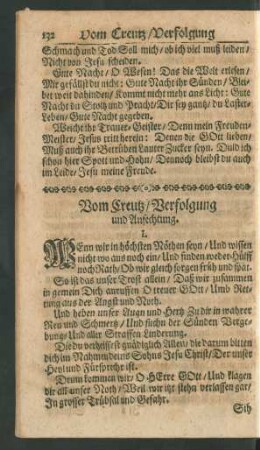 132 Vom Creutz/Verfolgung
Schmach und Tod Soll mich/ ob ich viel muß leiden/
Nicht von Jesu scheiden.
Gute Nacht/ O Wesen! Das die Welt erlesen/
Mir gefällst du nicht: Gute Nacht ihr Sünden/ Blei-
bet weit dahinden/ Kommt nicht mehr ans Licht: Gute
Nacht du Stoltz und Pracht/ Dir sey gantz/ du Laster-
Leben/ Gute Nacht gegeben.
Weicht ihr Trauer-Geister/ Denn mein Freuden-
Meister/ Jesus tritt herein: Denen die GOtt lieben/
Muß auch ihr Betrüben Lauter Zucker seyn. Duld ich
schon hier Spott und Hohn/ Dennoch bleibst du auch
im Leide/ Jesu meine Freude.
Vom Creutz/ Verfolgung
und Anfechtung.
I.
WEnn wir in höchsten Nöthen seyn/ Und wissen
nicht wo aus noch ein/ Und finden weder Hülff
noch Rath/ Ob wir gleich sorgen früh und spat.
So ist das unser Trost allein/ Daß wir zusammen
in gemein Dich anruffen O treuer GOtt/ Umb Ret-
tung aus der Angst und Noth.
Und heben unser Augn und Hertz Zu dir in wahrer
Reu und Schmertz/ Und suchen der Sünden Verge-
bung/ Und aller Straffen Linderung.
Die du verheissest gnädiglich Allen/ die darum bitten
dich im Nahmn deins Sohns Jesu Christ/ Der unser
Heyl und Fürsprechr ist.
Drum kommen wir/ O HErre GOtt/ Und klagen
dir all unser Noth/ Weil wir itzt stehn verlassen gar/
In grosser Trübsal und Gefahr.
Sih